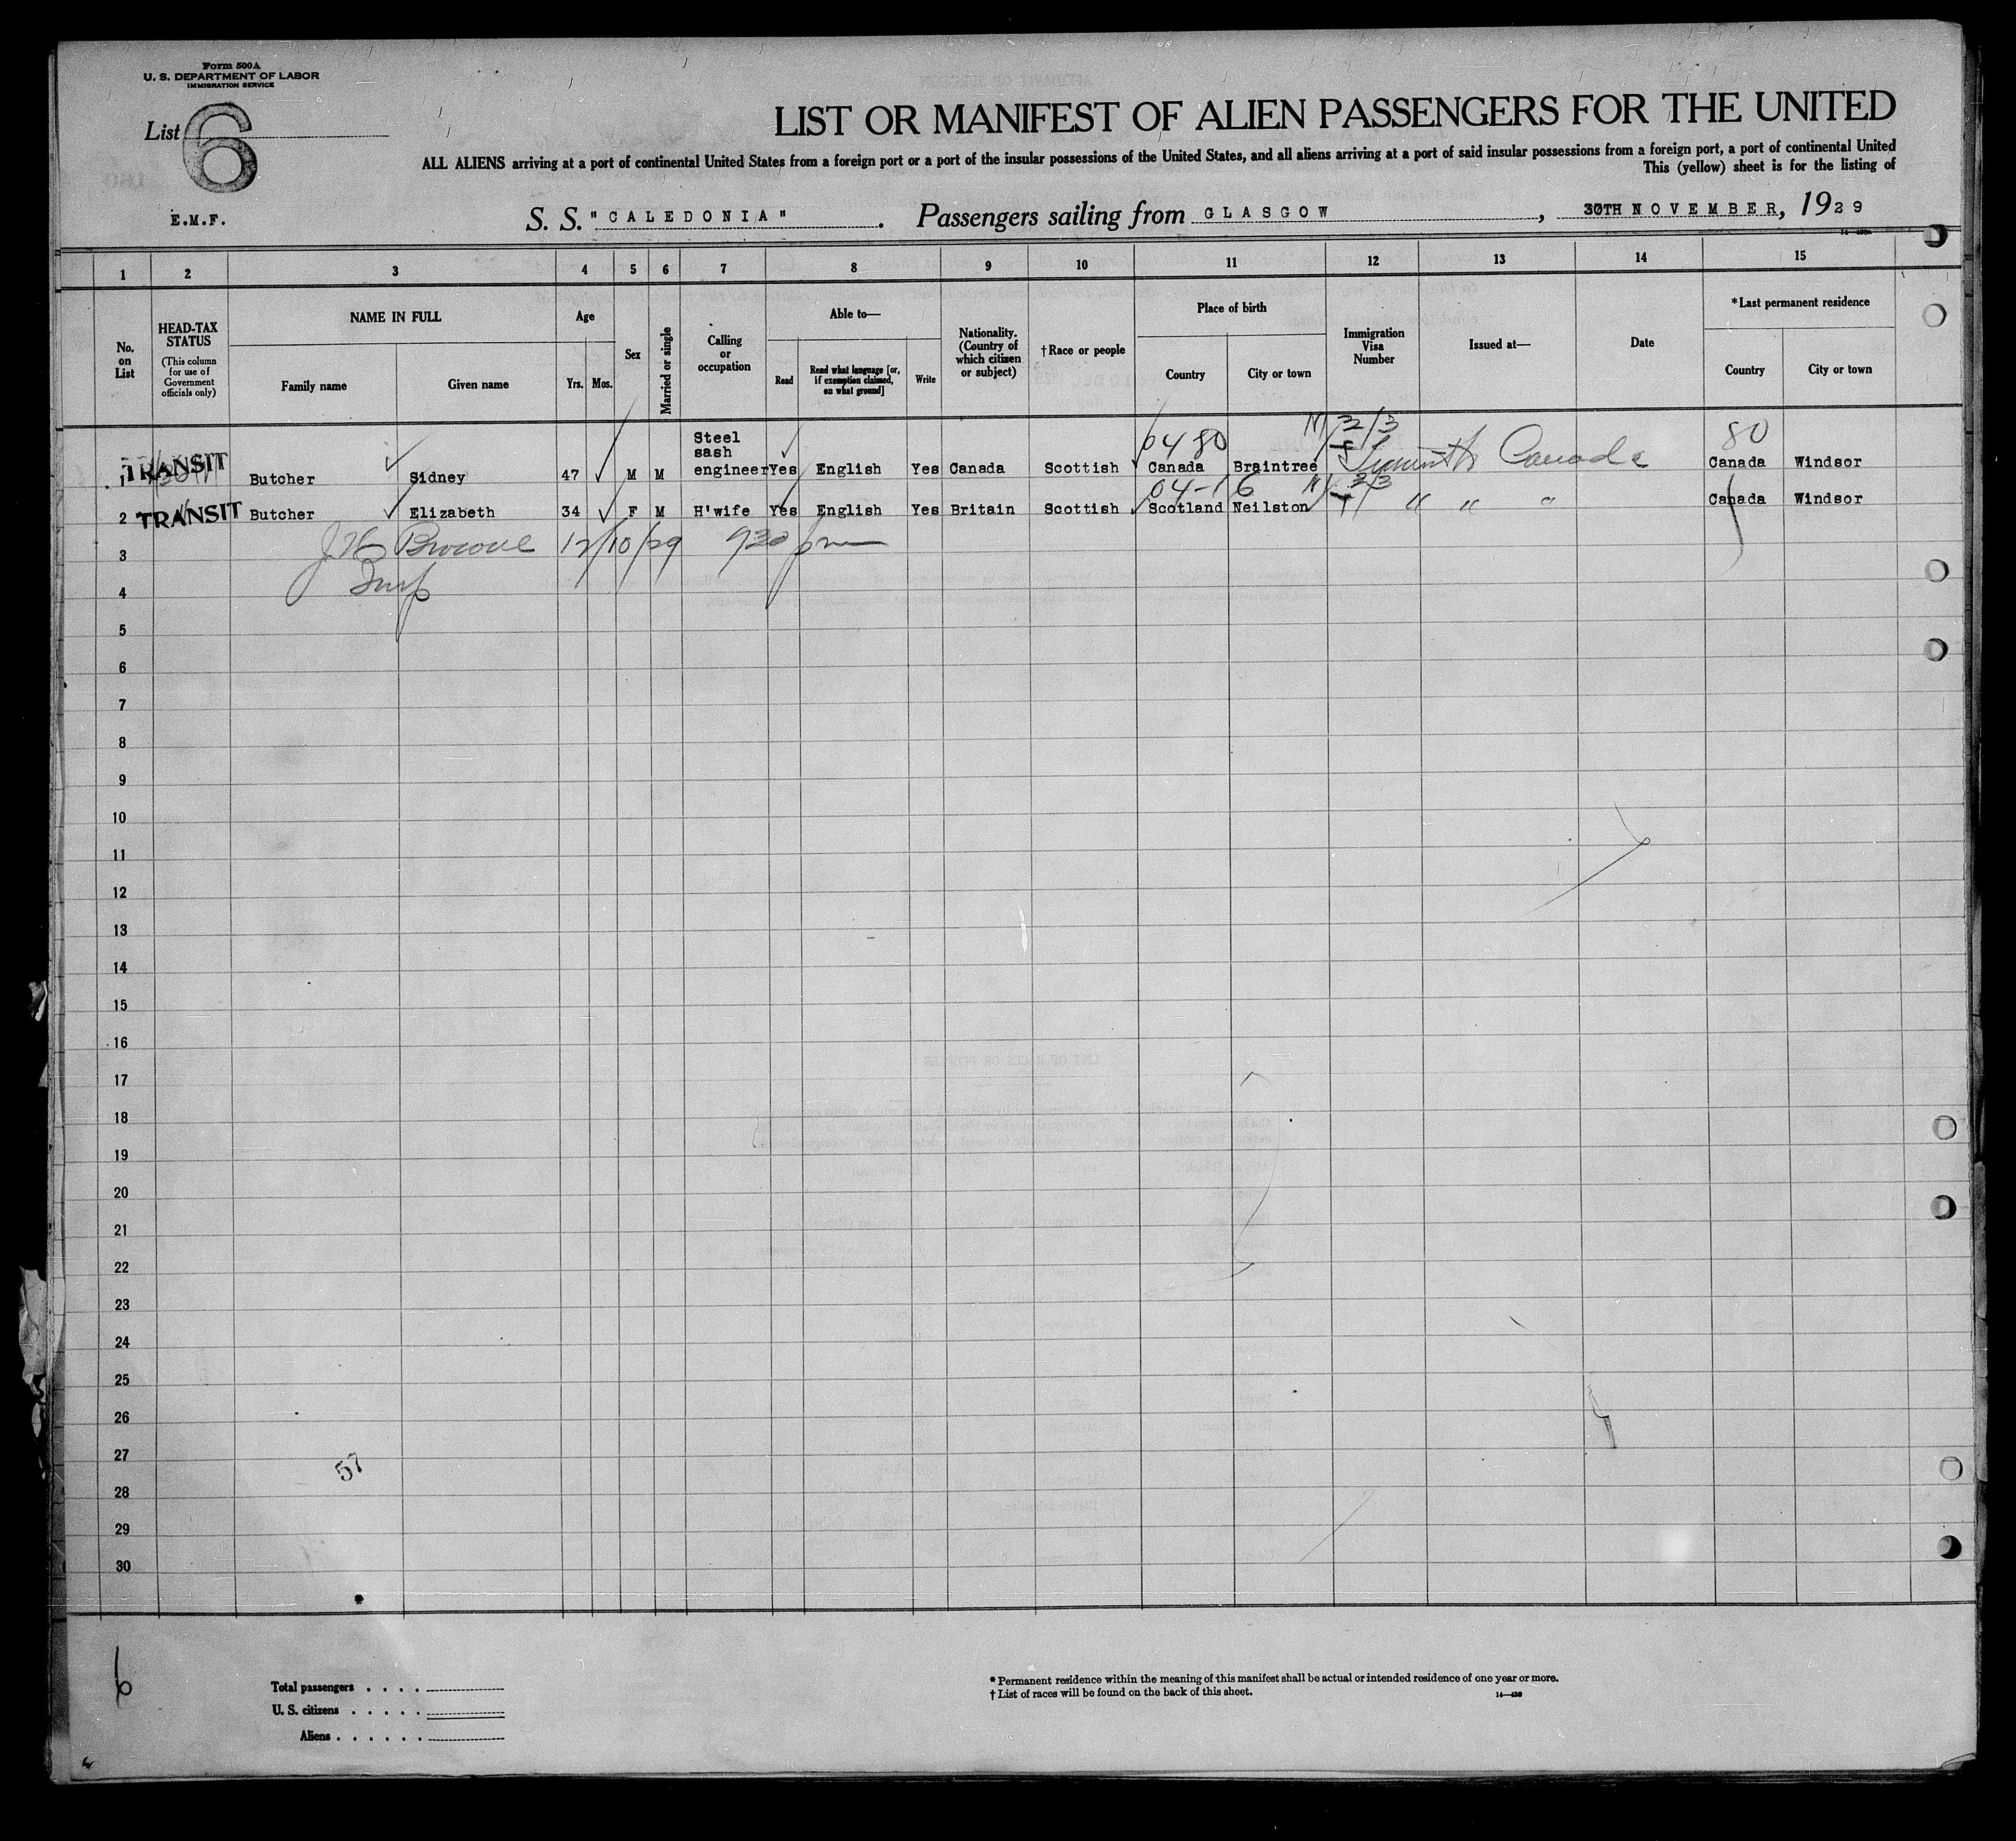 Form 500A
U. S. DEPARTMENT OF LABOR
IMMIGRATION SERVICE
List 6
LIST OR MANIFEST OF ALIEN PASSENGERS FOR THE UNITED
ALL ALIENS arriving at a port of continental United States from a foreign port or a port of the insular possessions of the United States, and all aliens arriving at a port of said insular possessions from a foreign port, a port of continental United
This (yellow) sheet is for the listing of
E.M.F.
S. S. "CALEDONIA". Passengers sailing from GLASGOW, 30TH NOVEMBER, 1929
1 2 3 4 5 6 7 8 9 10 11 12 13 14 15
No. on List
HEAD-TAX STATUS
(This column for use of Government officials only)
NAME IN FULL
Family name
Given name
Age
Yrs. Mos.
Sex
Married or single
Calling or occupation
Able to—
Read
Read what language [or, if exemption claimed, on what ground]
Write
Nationality. (Country of which citizen or subject)
†Race or people
Place of birth
Country
City or town
Immigration Visa Number
Issued at—
Date
*Last permanent residence
Country
City or town
0480
80
1 TRANSIT Butcher Sidney 47 M M Steel sash engineer Yes English Yes Canada Scottish Canada Braintree Canada Canada Windsor
04-16
2 TRANSIT Butcher Elizabeth 34 F M H'wife Yes English Yes Britain Scottish Scotland Neilston " " " Canada Windsor
3 Browne 12/10/29 930 pm
4 Insp
5
6
7
8
9
10
11
12
13
14
15
16
17
18
19
20
21
22
23
24
25
26
27
57
28
29
30
6
Total passengers
U. S. citizens
Aliens
* Permanent residence within the meaning of this manifest shall be actual or intended residence of one year or more.
† List of races will be found on the back of this sheet.